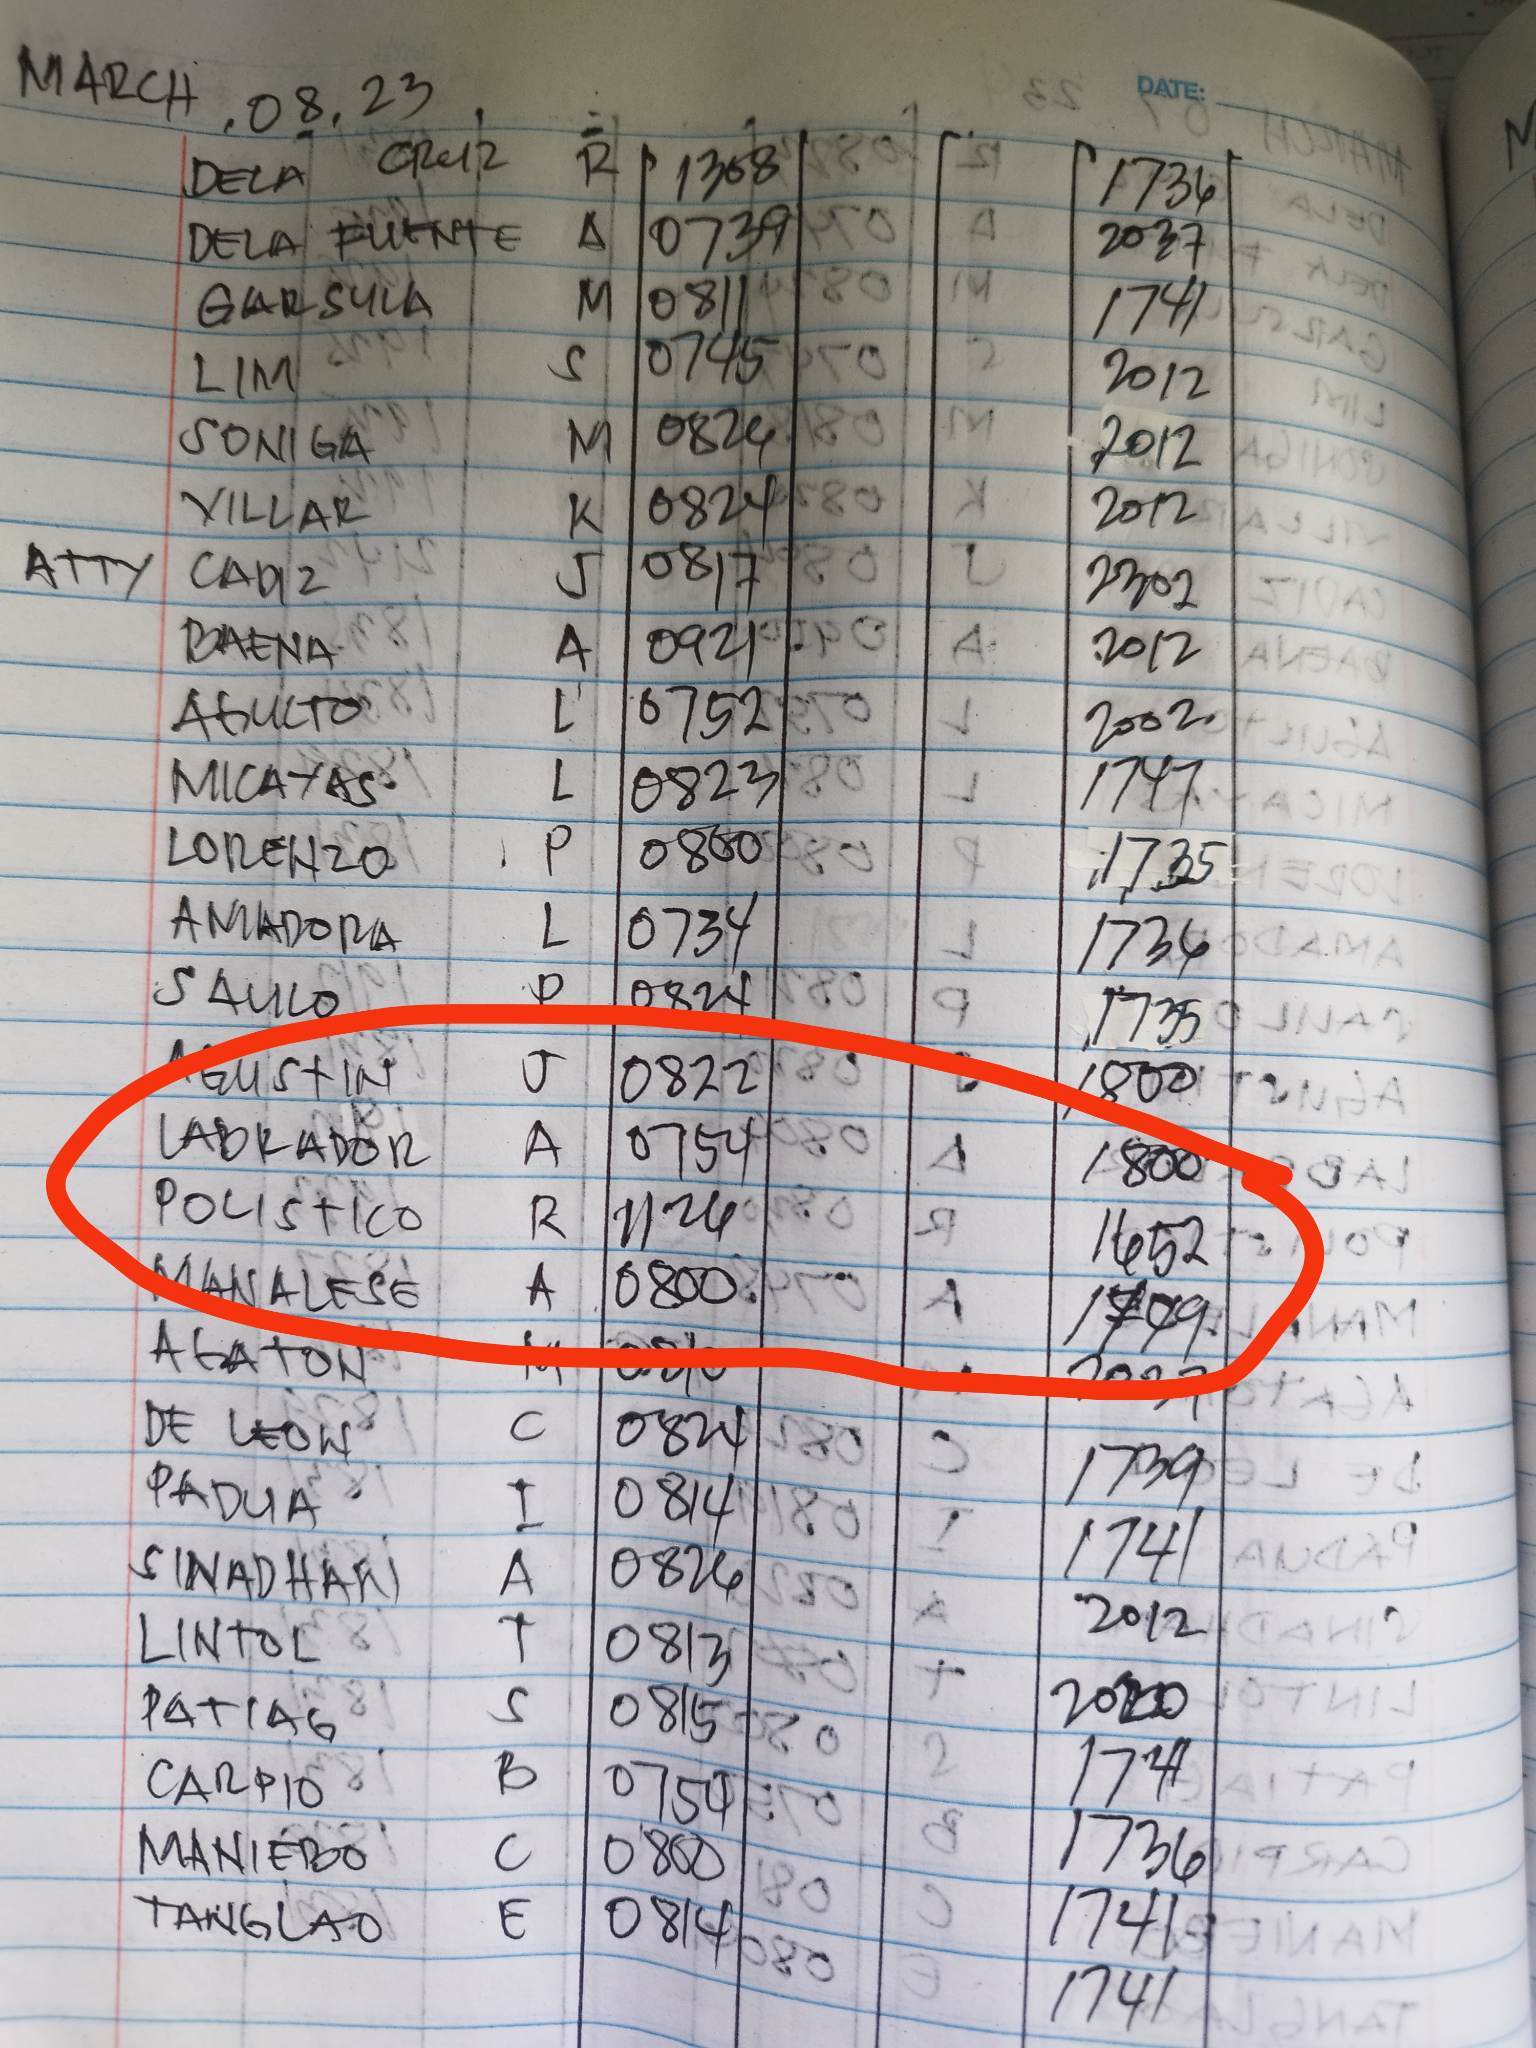 MARCH .08.23
DATE:
DELA CRUZ R 1308 1736
DELA FUENTE A 0739 2037
GARSULA M 0811 1741
LIM S 0745 2012
SONIGA M 0826 2012
VILLAR K 0824 2012
ATTY CADIZ J 0817 2302
BAENA A 0921 2012
AGULTO L 0752 2002
MICAYAS L 0823 1747
LORENZO P 0800 1735
AMADORA L 0734 1736
SAULO P 0824 1735
AGUSTIN J 0822 1800
LABRADOR A 0754 1800
POLISTICO R 1126 1652
MANALESE A 0800 1749
AGATON M 0810 2037
DE LEON C 0824 1739
PADUA I 0814 1741
SINADHAN A 0826 2012
LINTOL T 0813 2020
PATIAG S 0815 1741
CARPIO B 0754 1736
MANIEBO C 0800 1741
TANGLAO E 0814 1741